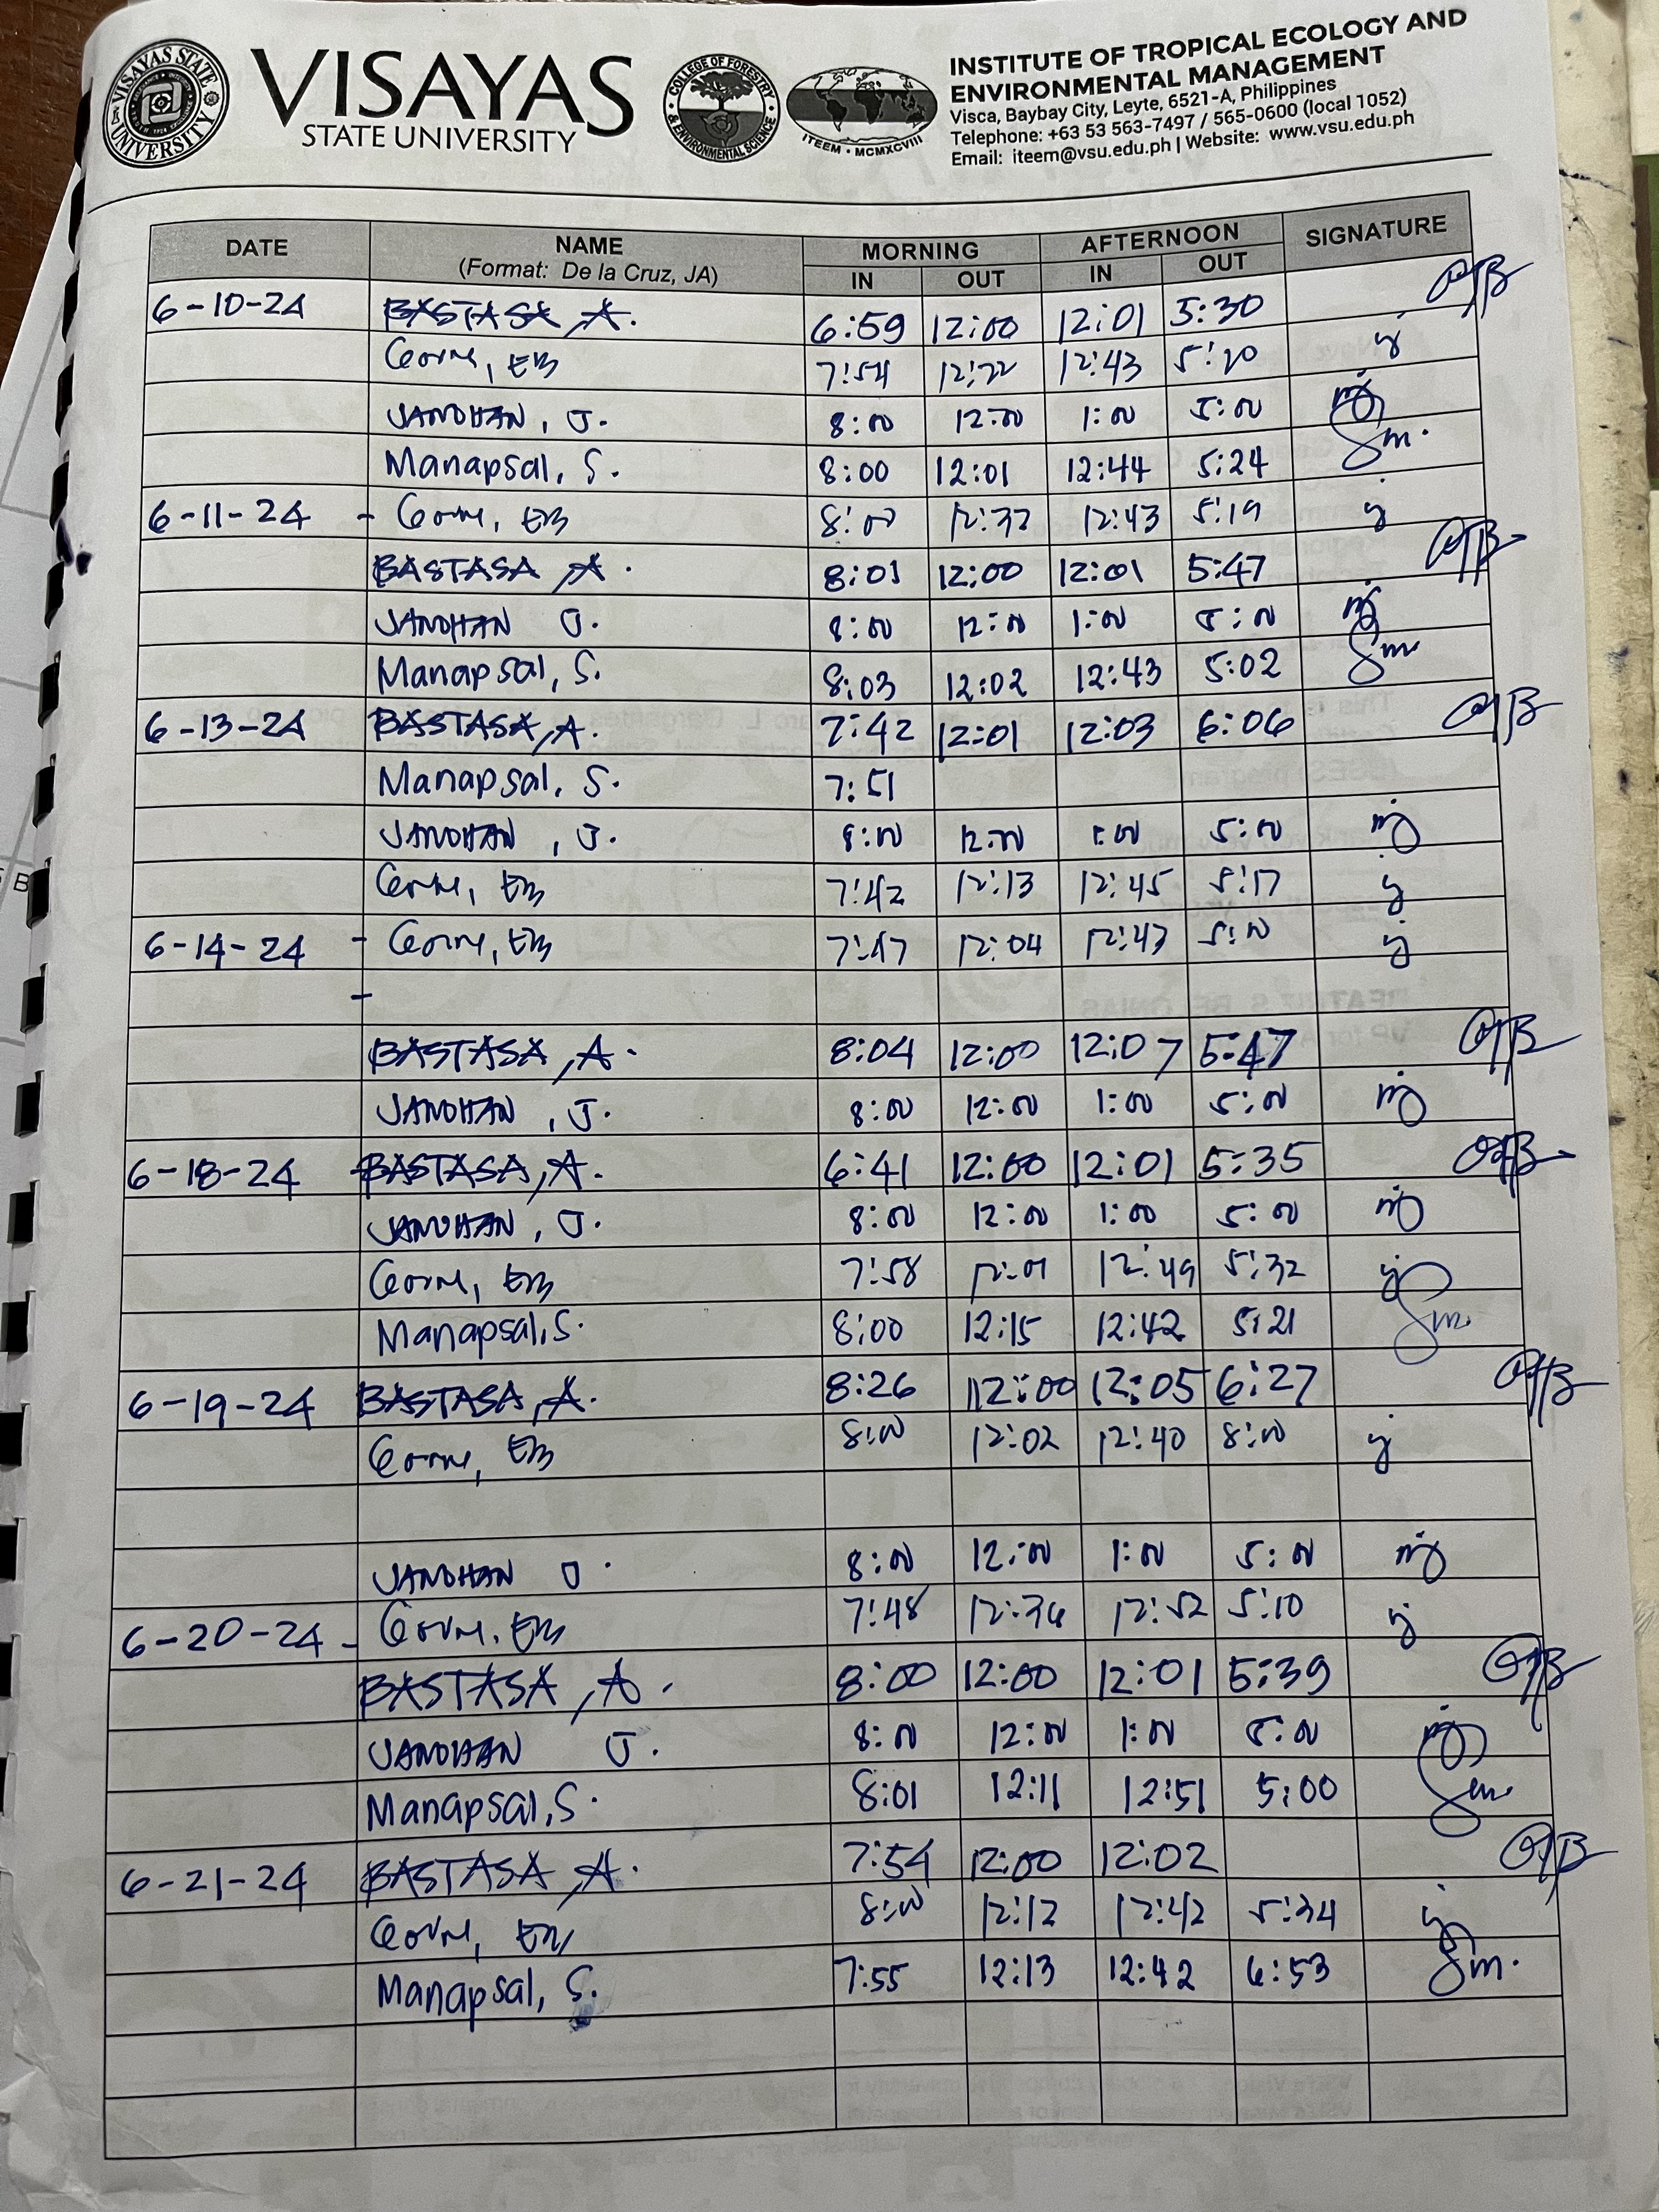 VISAYAS
STATE UNIVERSITY
VISAYAS STATE UNIVERSITY
COLLEGE OF FORESTRY & ENVIRONMENTAL SCIENCE
ITEEM • MCMXCVIII
INSTITUTE OF TROPICAL ECOLOGY AND
ENVIRONMENTAL MANAGEMENT
Visca, Baybay City, Leyte, 6521-A, Philippines
Telephone: +63 53 563-7497 / 565-0600 (local 1052)
Email: iteem@vsu.edu.ph | Website: www.vsu.edu.ph
DATE NAME MORNING AFTERNOON SIGNATURE
(Format: De la Cruz, JA) IN OUT IN OUT
6-10-24 BASTASA, A. 6:59 12:00 12:01 5:30
EB 7:54 12:22 12:43 5:20
JANDHAN, J. 8:00 12:00 1:00 5:00
Manapsal, S. 8:00 12:01 12:44 5:24 Sm.
6-11-24 - EB 8:00 12:43 5:19
BASTASA, A. 8:01 12:00 12:01 5:47
JANDHAN J. 8:00 12:00 1:00 5:00
Manapsal, S. 8:03 12:02 12:43 5:02 Sm
6-13-24 BASTASA, A. 7:42 12:01 12:03 6:06
Manapsal, S. 7:51
JANDHAN, J. 8:00 12:00 1:00 5:00
EB 7:42 12:13 12:45 5:17
6-14-24 - EB 7:47 12:04 12:47 5:00
-
BASTASA, A. 8:04 12:00 12:07 5:47
JANDHAN, J. 8:00 12:00 1:00 5:00
6-18-24 - BASTASA, A. 6:41 12:00 12:01 5:35
JANDHAN, J. 8:00 12:00 1:00 5:00
EB 7:58 12:01 12:49 5:32
Manapsal, S. 8:00 12:15 12:42 5:21 Sm.
6-19-24 BASTASA, A. 8:26 12:00 12:05 6:27
EB 8:00 12:02 12:40 8:00
JANDHAN J. 8:00 12:00 1:00 5:00
6-20-24 - EB 7:48 12:36 12:52 5:10
BASTASA, A. 8:00 12:00 12:01 5:39
JANDHAN J. 8:00 12:00 1:00 5:00
Manapsal, S. 8:01 12:11 12:51 5:00 Sm
6-21-24 BASTASA, A. 7:54 12:00 12:02
8:00 12:12 12:42 5:34
Manapsal, S. 7:55 12:13 12:42 6:53 Sm.